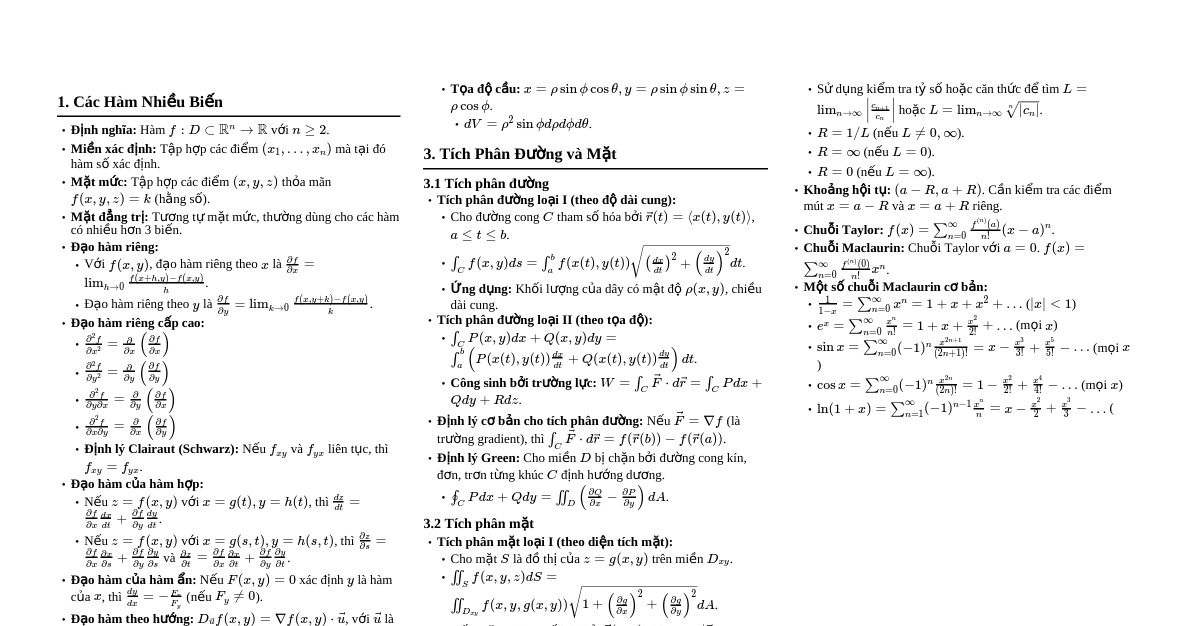 1. Các Hàm Nhiều Biến
• Định nghĩa: Hàm f : D ⊂ ℝⁿ → ℝ với n ≥ 2.
• Miền xác định: Tập hợp các điểm (x₁, . . . , xₙ) mà tại đó
hàm số xác định.
• Mặt mức: Tập hợp các điểm (x, y, z) thỏa mãn
f(x, y, z) = k (hằng số).
• Mặt đẳng trị: Tương tự mặt mức, thường dùng cho các hàm
có nhiều hơn 3 biến.
• Đạo hàm riêng:
• Với f(x, y), đạo hàm riêng theo x là ∂f/∂x =
lim_{h→0} (f(x+h,y)−f(x,y))/h.
• Đạo hàm riêng theo y là ∂f/∂y = lim_{k→0} (f(x,y+k)−f(x,y))/k.
• Đạo hàm riêng cấp cao:
• ∂²f/∂x² = ∂/∂x (∂f/∂x)
• ∂²f/∂y² = ∂/∂y (∂f/∂y)
• ∂²f/∂y∂x = ∂/∂y (∂f/∂x)
• ∂²f/∂x∂y = ∂/∂x (∂f/∂y)
• Định lý Clairaut (Schwarz): Nếu f_{xy} và f_{yx} liên tục, thì
f_{xy} = f_{yx}.
• Đạo hàm của hàm hợp:
• Nếu z = f(x, y) với x = g(t), y = h(t), thì dz/dt =
∂f/∂x dx/dt + ∂f/∂y dy/dt.
• Nếu z = f(x, y) với x = g(s, t), y = h(s, t), thì ∂z/∂s =
∂f/∂x ∂x/∂s + ∂f/∂y ∂y/∂s và ∂z/∂t = ∂f/∂x ∂x/∂t + ∂f/∂y ∂y/∂t.
• Đạo hàm của hàm ẩn: Nếu F(x, y) = 0 xác định y là hàm
của x, thì dy/dx = −F_x/F_y (nếu F_y ≠ 0).
• Đạo hàm theo hướng: D_{u⃗}f(x, y) = ∇f(x, y) · u⃗, với u⃗ là
• Tọa độ cầu: x = ρ sin ϕ cos θ, y = ρ sin ϕ sin θ, z =
ρ cos ϕ.
• dV = ρ² sin ϕdρdϕdθ.
3. Tích Phân Đường và Mặt
3.1 Tích phân đường
• Tích phân đường loại I (theo độ dài cung):
• Cho đường cong C tham số hóa bởi r⃗(t) = ⟨x(t), y(t)⟩,
a ≤ t ≤ b.
• ∫_C f(x, y)ds = ∫_a^b f(x(t), y(t))√((dx/dt)² + (dy/dt)²)dt.
• Ứng dụng: Khối lượng của dây có mật độ ρ(x, y), chiều
dài cung.
• Tích phân đường loại II (theo tọa độ):
• ∫_C P(x, y)dx + Q(x, y)dy =
∫_a^b (P(x(t), y(t))dx/dt + Q(x(t), y(t))dy/dt) dt.
• Công sinh bởi trường lực: W = ∫_C F⃗ · dr⃗ = ∫_C Pdx +
Qdy + Rdz.
• Định lý cơ bản cho tích phân đường: Nếu F⃗ = ∇f (là
trường gradient), thì ∫_C F⃗ · dr⃗ = f(r⃗(b)) − f(r⃗(a)).
• Định lý Green: Cho miền D bị chặn bởi đường cong kín,
đơn, trơn từng khúc C định hướng dương.
• ∮_C Pdx + Qdy = ∬_D (∂Q/∂x − ∂P/∂y) dA.
3.2 Tích phân mặt
• Tích phân mặt loại I (theo diện tích mặt):
• Cho mặt S là đồ thị của z = g(x, y) trên miền D_{xy}.
• ∬_S f(x, y, z)dS =
∬_{D_{xy}} f(x, y, g(x, y))√(1 + (∂g/∂x)² + (∂g/∂y)²)dA.
• Sử dụng kiểm tra tỷ số hoặc căn thức để tìm L =
lim_{n→∞} |c_{n+1}/c_n| hoặc L = lim_{n→∞} ⁿ√|c_n|.
• R = 1/L (nếu L ≠ 0, ∞).
• R = ∞ (nếu L = 0).
• R = 0 (nếu L = ∞).
• Khoảng hội tụ: (a − R, a + R). Cần kiểm tra các điểm
mút x = a − R và x = a + R riêng.
• Chuỗi Taylor: f(x) = ∑_{n=0}^∞ f⁽ⁿ⁾(a)/n! (x − a)ⁿ.
• Chuỗi Maclaurin: Chuỗi Taylor với a = 0. f(x) =
∑_{n=0}^∞ f⁽ⁿ⁾(0)/n! xⁿ.
• Một số chuỗi Maclaurin cơ bản:
• 1/(1−x) = ∑_{n=0}^∞ xⁿ = 1 + x + x² + . . . (|x| < 1)
• eˣ = ∑_{n=0}^∞ xⁿ/n! = 1 + x + x²/2! + . . . (mọi x)
• sin x = ∑_{n=0}^∞ (−1)ⁿ x²ⁿ⁺¹/(2n+1)! = x − x³/3! + x⁵/5! − . . . (mọi x
)
• cos x = ∑_{n=0}^∞ (−1)ⁿ x²ⁿ/(2n)! = 1 − x²/2! + x⁴/4! − . . . (mọi x)
• ln(1 + x) = ∑_{n=1}^∞ (−1)ⁿ⁻¹ xⁿ/n = x − x²/2 + x³/3 − . . . (